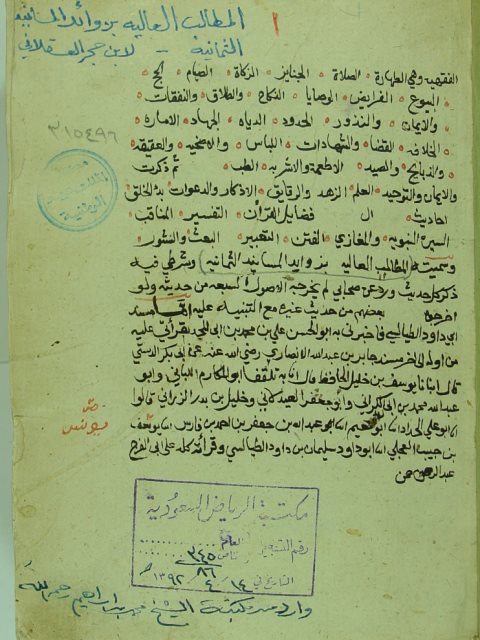 المطالب العاليه بزوائد المسانيد
الثمانية - لابن حجر العسقلاني
الفقهيه وهي الطهارة الصلاة الجنايز الزكاة الصيام الحج
البيوع الفرايض الوصايا النكاح والطلاق والنفقات
والايمان والنذور الحدود الدياه الجهاد الامارة
الخلافه القضا والشهادات اللباس والاضحيه والعقيقه
والذبايح والصيد الاطعمة والاشربه الطب ثم ذكرت
والايمان والتوحيد العلم الزهد والرقايق الاذكار والدعوات بدء الخلق
احاديث ال فضايل القرآن التفسير المناقب
السيرة النبويه والمغازي الفتن التعبير البعث والنشور
وسميته المطالب العاليه بزوايد المسانيد الثمانيه وشرطي فيه
ذكر كل حديث ورد عن صحابي لم يخرجه الاصول السبعه من حديثه ولو
اخرجوه بعضهم من حديث غيره مع التنبيه عليه اما مسند
ابي داود الطيالسي فاخبرني به ابو الحسن علي بن محمد بن ابي المجد بقرأتي عليه
من اوله الى اخر مسند جابر بن عبد الله الانصاري رضي الله عنه
قال انبانا يوسف بن خليل الحافظ قال انا به ابو المكارم اللباني وابو
عبد الله محمد بن ابي وابو جعفر الصيدلاني وخليل بن بدر قالوا
انا ابو علي الحداد انا ابو نعيم انا ابو عبد الله بن جعفر بن احمد بن فارس انا يوسف
بن حبيب العجلي انا ابو داود سليمان بن داود الطيالسي وقرات كله على ابي الفرج
عبد الرحمن
٣١٥٤٩٦
يونس
مكتبة الرياض السعودية
رقم التسجيل العام
٣٤٥
٨٦
التاريخ ١٤ / ٤ / ١٣٩٢ هـ
وارد من مكتبة الشيخ محمد بن ابراهيم رحمه الله